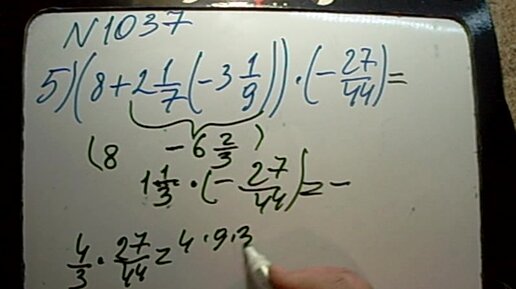 N1037
5)(8+2 1/7(-3 1/9))·(-27/44)=
(8 -6 2/3)
1 1/3·(-27/44)=-
4/3·27/44=4·9·3